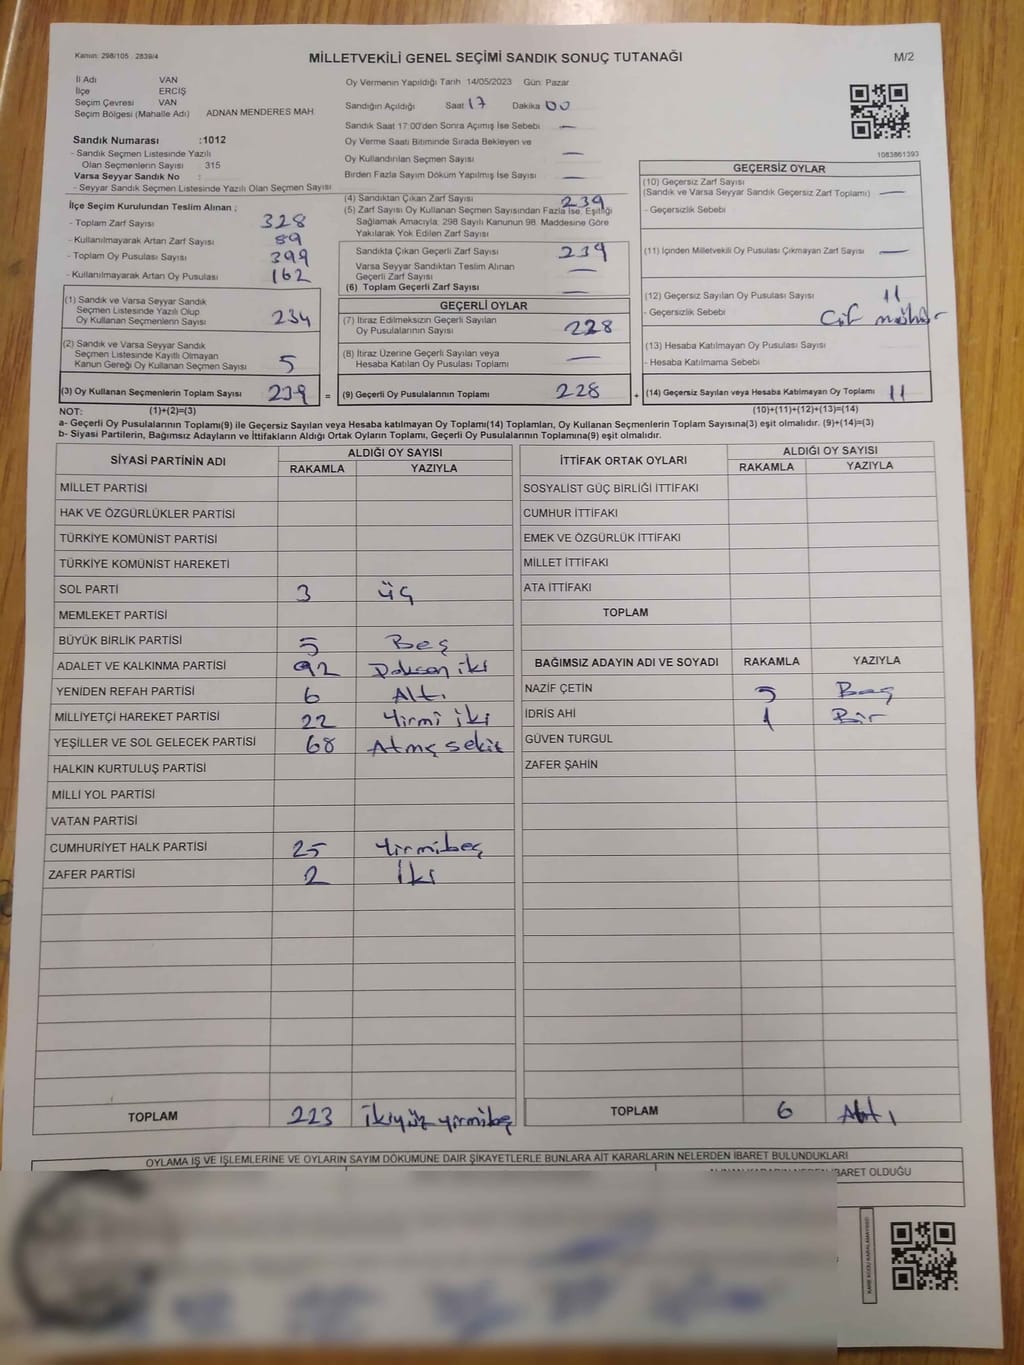 Kanun: 298/105 2839/4
MİLLETVEKİLİ GENEL SEÇİMİ SANDIK SONUÇ TUTANAĞI
M/2
İl Adı VAN
İlçe ERCİŞ
Seçim Çevresi VAN
Seçim Bölgesi (Mahalle Adı) ADNAN MENDERES MAH
Sandık Numarası :1012
- Sandık Seçmen Listesinde Yazılı
Olan Seçmenlerin Sayısı 315
Varsa Seyyar Sandık No :
- Seyyar Sandık Seçmen Listesinde Yazılı Olan Seçmen Sayısı
Oy Vermenin Yapıldığı Tarih 14/05/2023 Gün: Pazar
Sandığın Açıldığı Saat 17 Dakika 00
Sandık Saat 17:00'den Sonra Açımış İse Sebebi —
Oy Verme Saati Bitiminde Sırada Bekleyen ve
Oy Kullandırılan Seçmen Sayısı —
Birden Fazla Sayım Döküm Yapılmış İse Sayısı —
1083861393
İlçe Seçim Kurulundan Teslim Alınan ;
- Toplam Zarf Sayısı 328
- Kullanılmayarak Artan Zarf Sayısı 89
- Toplam Oy Pusulası Sayısı 399
- Kullanılmayarak Artan Oy Pusulası 162
(1) Sandık ve Varsa Seyyar Sandık
Seçmen Listesinde Yazılı Olup
Oy Kullanan Seçmenlerin Sayısı 234
(2) Sandık ve Varsa Seyyar Sandık
Seçmen Listesinde Kayıtlı Olmayan
Kanun Gereği Oy Kullanan Seçmen Sayısı 5
(3) Oy Kullanan Seçmenlerin Toplam Sayısı 239 =
(4) Sandıktan Çıkan Zarf Sayısı 239
(5) Zarf Sayısı Oy Kullanan Seçmen Sayısından Fazla İse, Eşitliği
Sağlamak Amacıyla, 298 Sayılı Kanunun 98. Maddesine Göre
Yakılarak Yok Edilen Zarf Sayısı
Sandıkta Çıkan Geçerli Zarf Sayısı 239
Varsa Seyyar Sandıktan Teslim Alınan
Geçerli Zarf Sayısı —
(6) Toplam Geçerli Zarf Sayısı —
GEÇERLİ OYLAR
(7) İtiraz Edilmeksizin Geçerli Sayılan
Oy Pusulalarının Sayısı 228
(8) İtiraz Üzerine Geçerli Sayılan veya
Hesaba Katılan Oy Pusulası Toplamı —
(9) Geçerli Oy Pusulalarının Toplamı 228 +
GEÇERSİZ OYLAR
(10) Geçersiz Zarf Sayısı
(Sandık ve Varsa Seyyar Sandık Geçersiz Zarf Toplamı) —
- Geçersizlik Sebebi
(11) İçinden Milletvekili Oy Pusulası Çıkmayan Zarf Sayısı —
(12) Geçersiz Sayılan Oy Pusulası Sayısı 11
- Geçersizlik Sebebi
(13) Hesaba Katılmayan Oy Pusulası Sayısı
- Hesaba Katılmama Sebebi
(14) Geçersiz Sayılan veya Hesaba Katılmayan Oy Toplamı 11
NOT: (1)+(2)=(3) (10)+(11)+(12)+(13)=(14)
a- Geçerli Oy Pusulalarının Toplamı(9) ile Geçersiz Sayılan veya Hesaba katılmayan Oy Toplamı(14) Toplamları, Oy Kullanan Seçmenlerin Toplam Sayısına(3) eşit olmalıdır. (9)+(14)=(3)
b- Siyasi Partilerin, Bağımsız Adayların ve İttifakların Aldığı Ortak Oyların Toplamı, Geçerli Oy Pusulalarının Toplamına(9) eşit olmalıdır.
SİYASİ PARTİNİN ADI ALDIĞI OY SAYISI
RAKAMLA YAZIYLA
MİLLET PARTİSİ
HAK VE ÖZGÜRLÜKLER PARTİSİ
TÜRKİYE KOMÜNİST PARTİSİ
TÜRKİYE KOMÜNİST HAREKETİ
SOL PARTİ 3 üç
MEMLEKET PARTİSİ
BÜYÜK BİRLİK PARTİSİ 5 Beş
ADALET VE KALKINMA PARTİSİ 92 Doksan iki
YENİDEN REFAH PARTİSİ 6 Altı
MİLLİYETÇİ HAREKET PARTİSİ 22 Yirmi iki
YEŞİLLER VE SOL GELECEK PARTİSİ 68 Atmş sekiz
HALKIN KURTULUŞ PARTİSİ
MİLLİ YOL PARTİSİ
VATAN PARTİSİ
CUMHURİYET HALK PARTİSİ 25 Yirmibeş
ZAFER PARTİSİ 2 İki
TOPLAM 223 ikiyüz yirmibeş
İTTİFAK ORTAK OYLARI ALDIĞI OY SAYISI
RAKAMLA YAZIYLA
SOSYALİST GÜÇ BİRLİĞİ İTTİFAKI
CUMHUR İTTİFAKI
EMEK VE ÖZGÜRLÜK İTTİFAKI
MİLLET İTTİFAKI
ATA İTTİFAKI
TOPLAM
BAĞIMSIZ ADAYIN ADI VE SOYADI RAKAMLA YAZIYLA
NAZİF ÇETİN 5 Beş
İDRİS AHİ 1 Bir
GÜVEN TURGUL
ZAFER ŞAHİN
TOPLAM 6 Altı
OYLAMA İŞ VE İŞLEMLERİNE VE OYLARIN SAYIM DÖKÜMÜNE DAİR ŞİKAYETLERLE BUNLARA AİT KARARLARIN NELERDEN İBARET BULUNDUKLARI
İBARET OLDUĞU